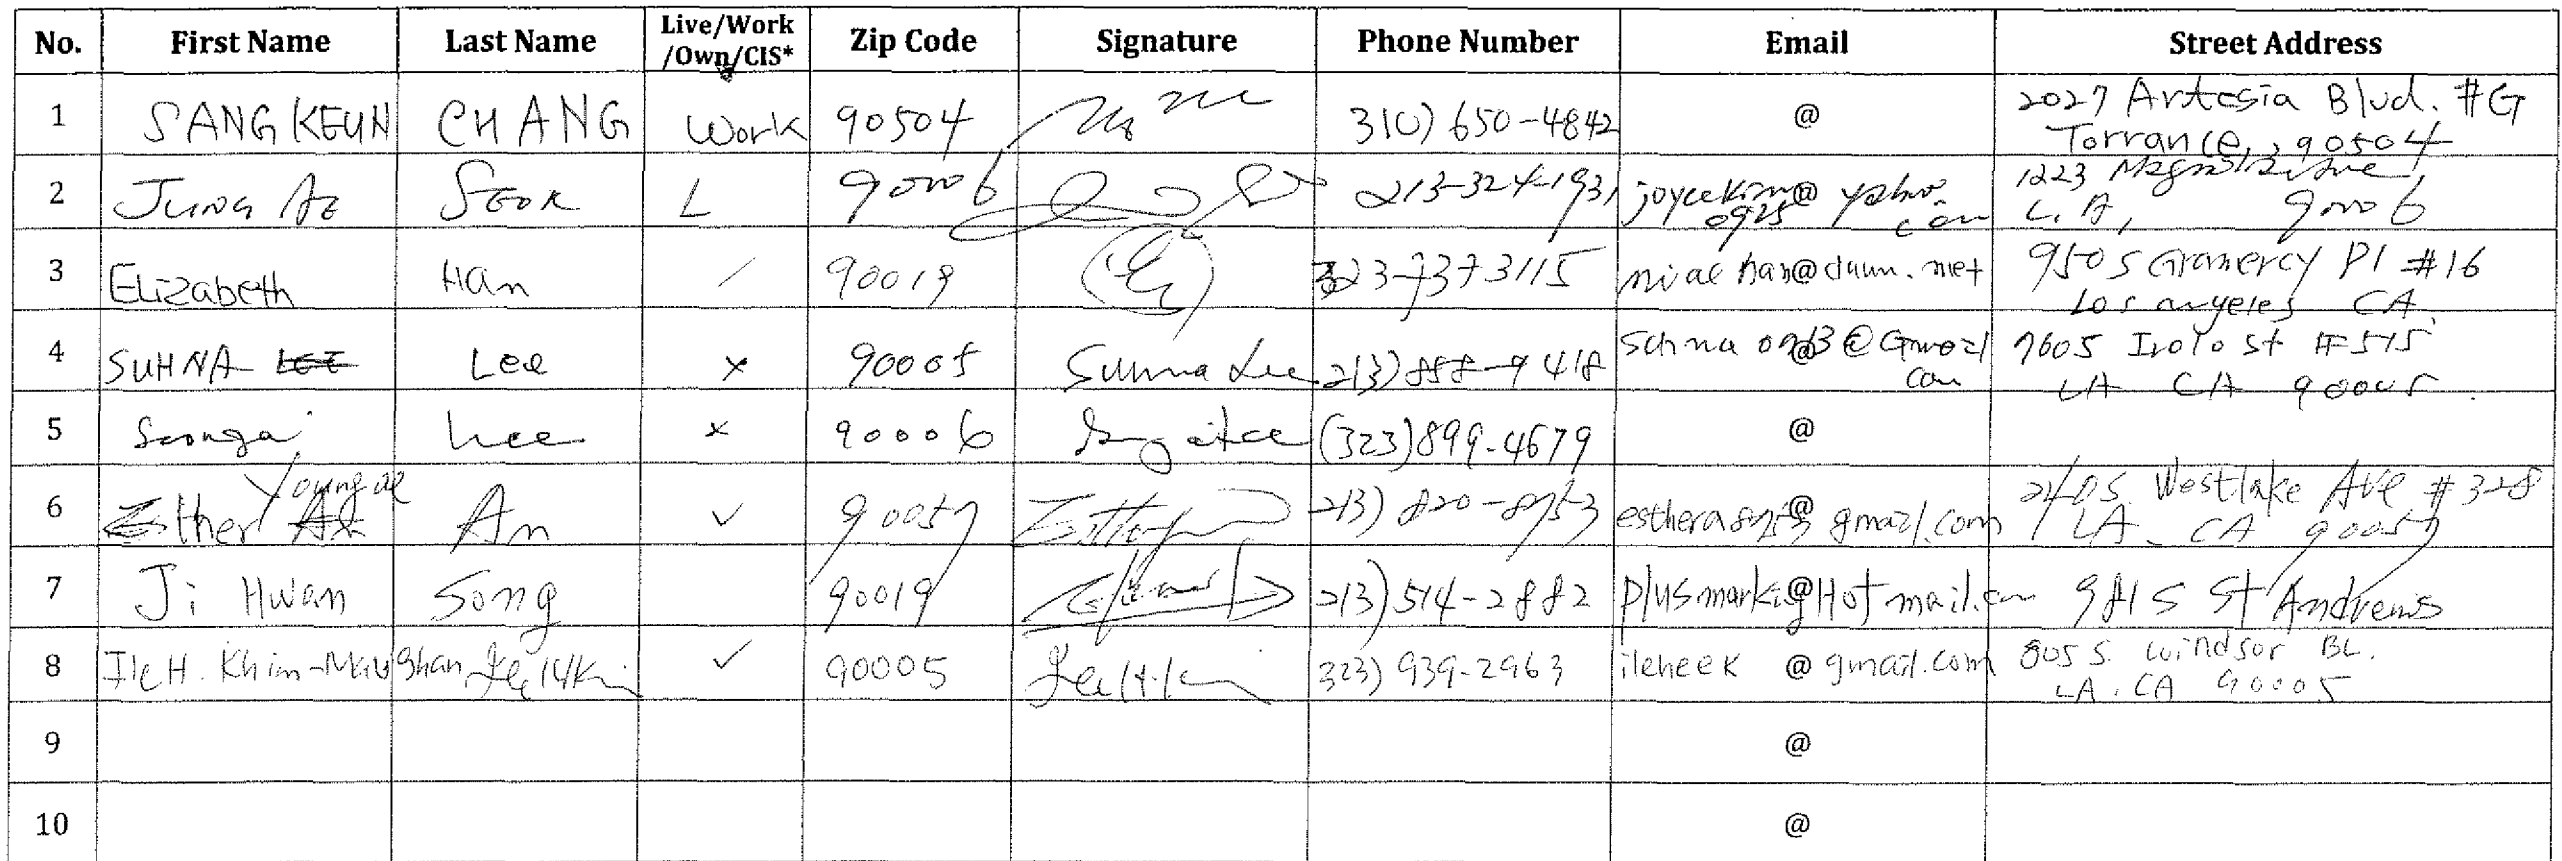 No. First Name Last Name Live/Work /Own/CIS* Zip Code Signature Phone Number Email Street Address
1 SANG KEUN CHANG Work 90504 310) 650-4842 @ 2027 Artesia Blvd. #G
Torrance, 90504
2 JUNG AE SEOK L 90006 213-324-1931 joycekim0925@yahoo.com 1223 Magnolia Ave
L.A, 90006
3 Elizabeth Han / 90019 323-737 3115 @daum.net 950 S Gramercy Pl #16
Los angeles CA.
4 SUHNA Lee x 90005 Suhna Lee 213) 858-9418 @Gmail 
com LA CA 90005.
5 Seonga Lee x 90006 (323)899-4679 @
6 Youngae
Esther An ✓ 90057 213) 820-8753 gmail.com 240 S. Westlake Ave #328
LA. CA 90057
7 Ji Hwan Song 90019 213) 514-2882 plusmarki@Hotmail.com 981 S St Andrews
8 Ile H. Khim- ✓ 90005 323) 939-2963 ileheek @ gmail.com 805 S. Windsor BL.
LA. CA 90005
9 @
10 @